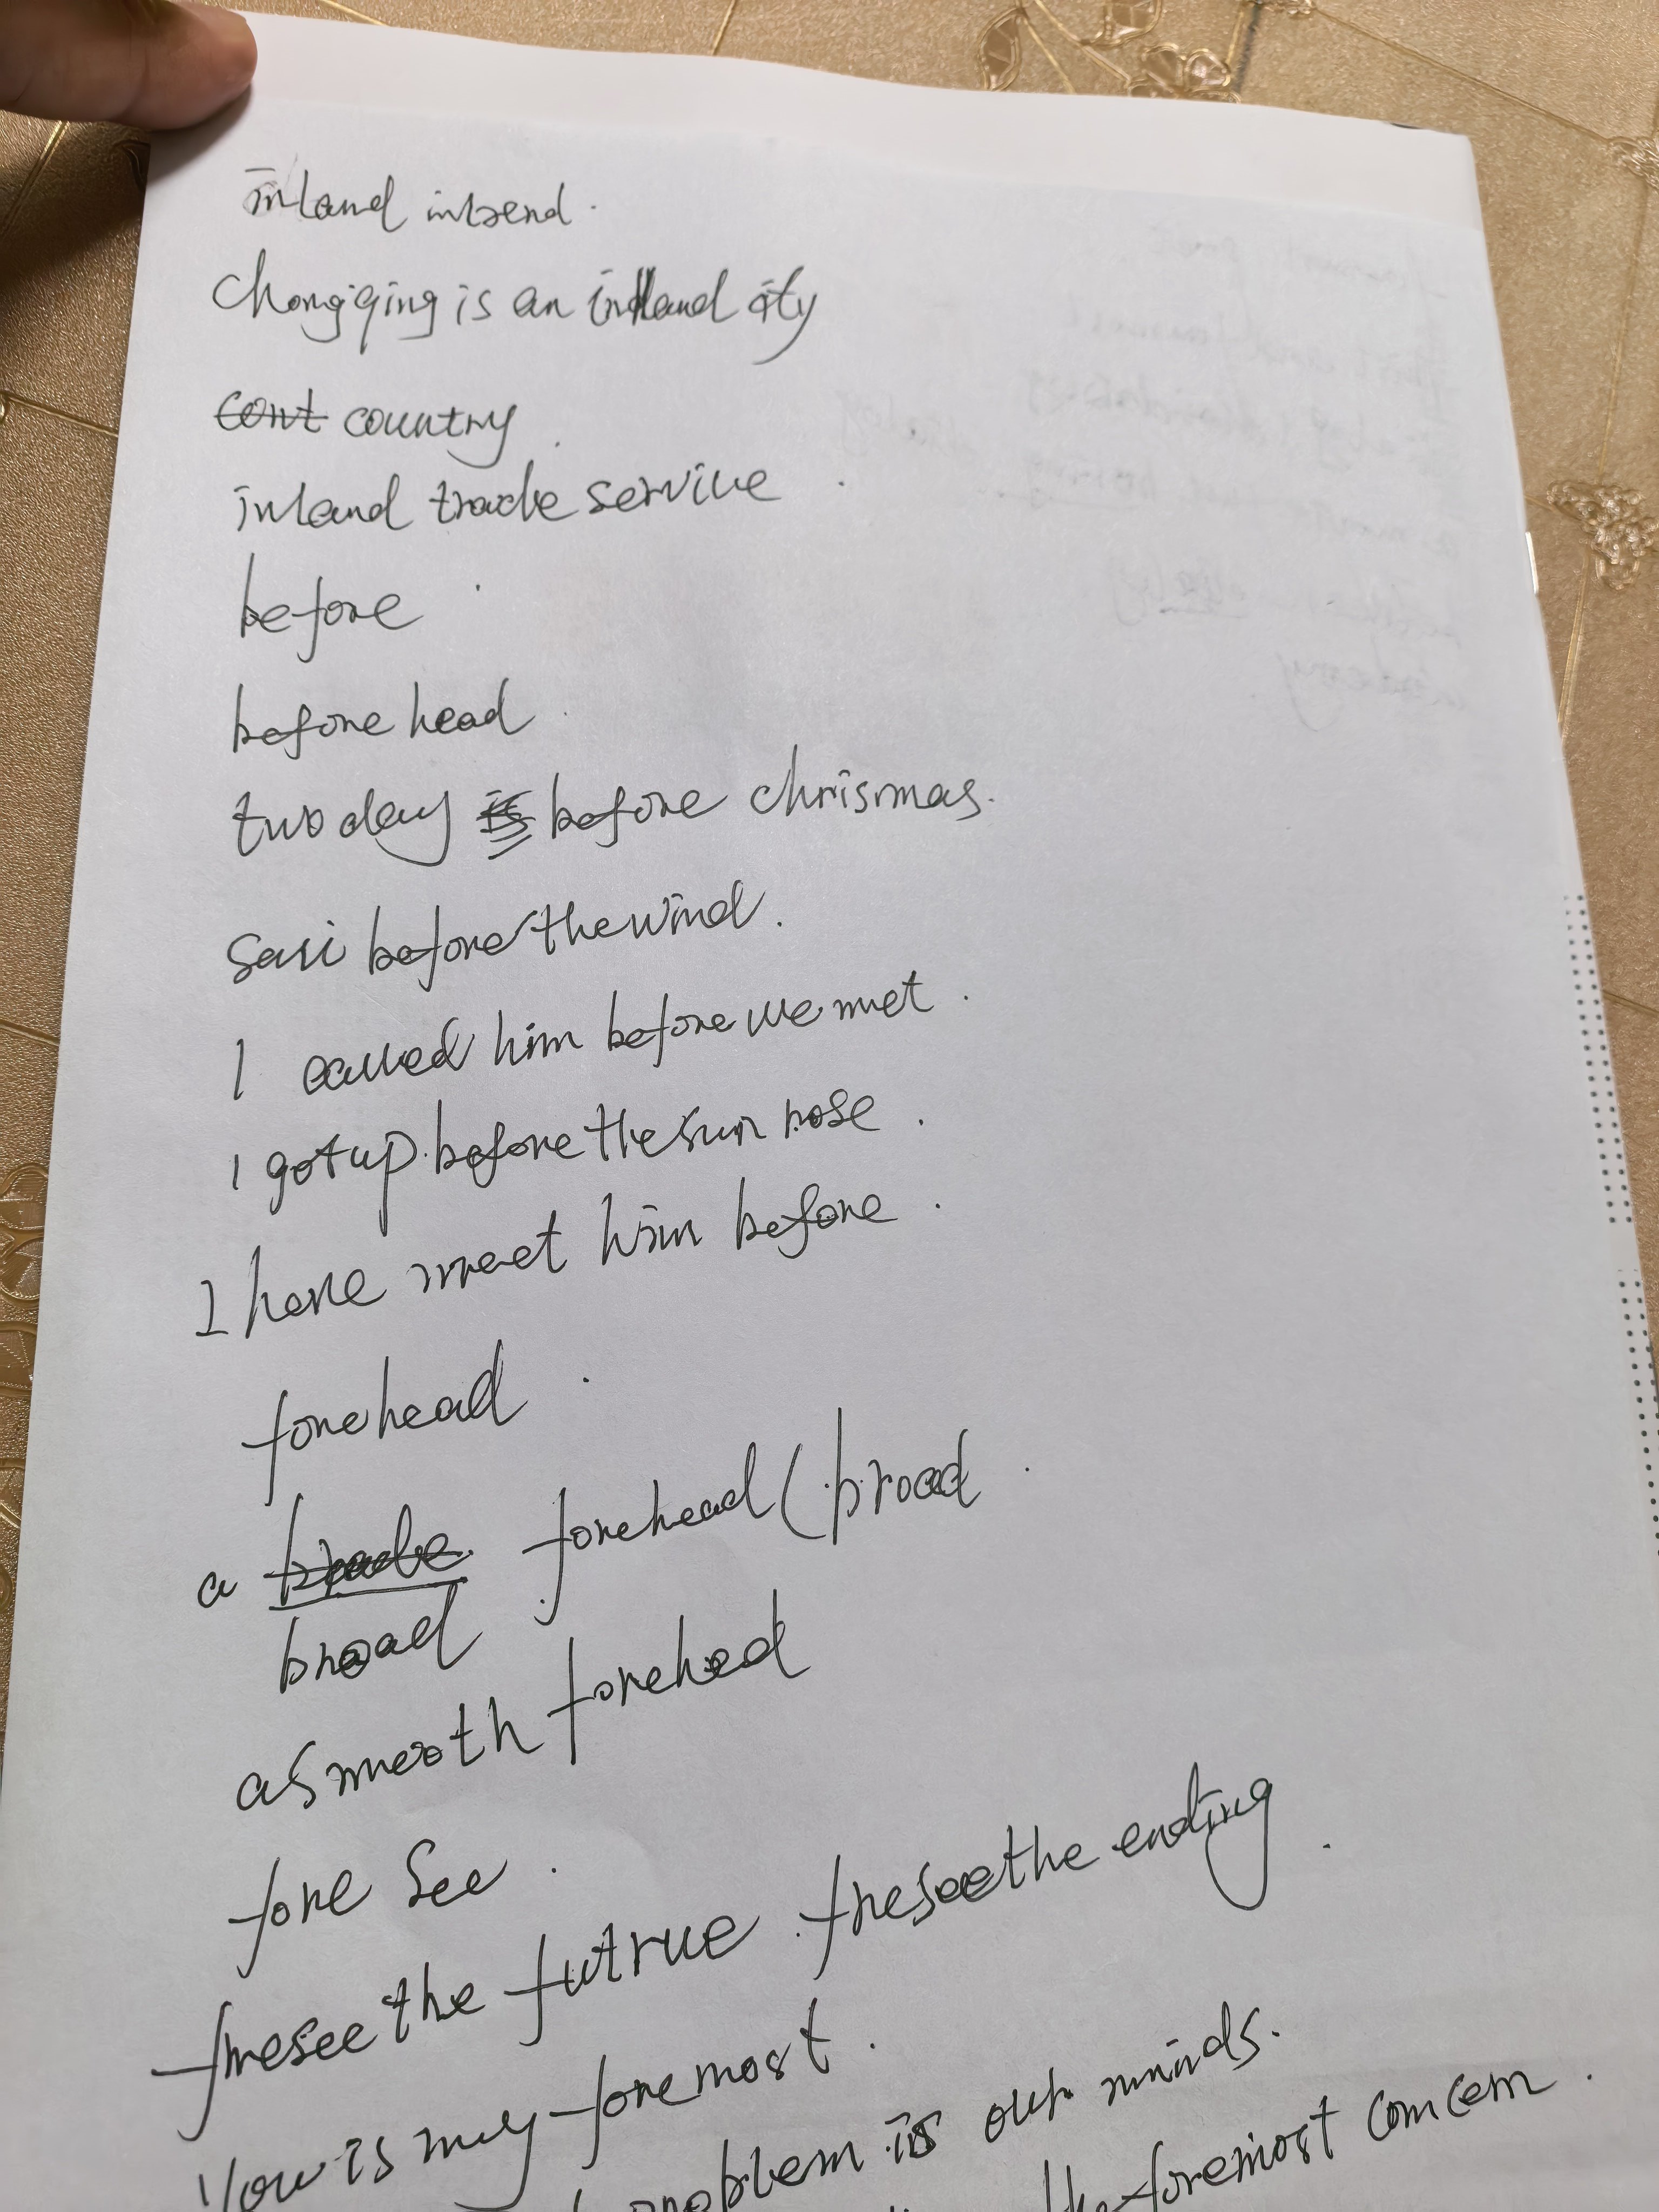 inland inland
Chongqing is an inland city
cont country
inland trade service
before
before head
two day is before chrismas.
Sail before the wind.
I called him before we met.
I got up before the sun rose.
I have meet him before.
forehead
a forehead (broad
broad
a smooth forehead
fore see
foresee the futrue foresee the ending
You is my foremost.
problem is our minds.
the foremost concern.